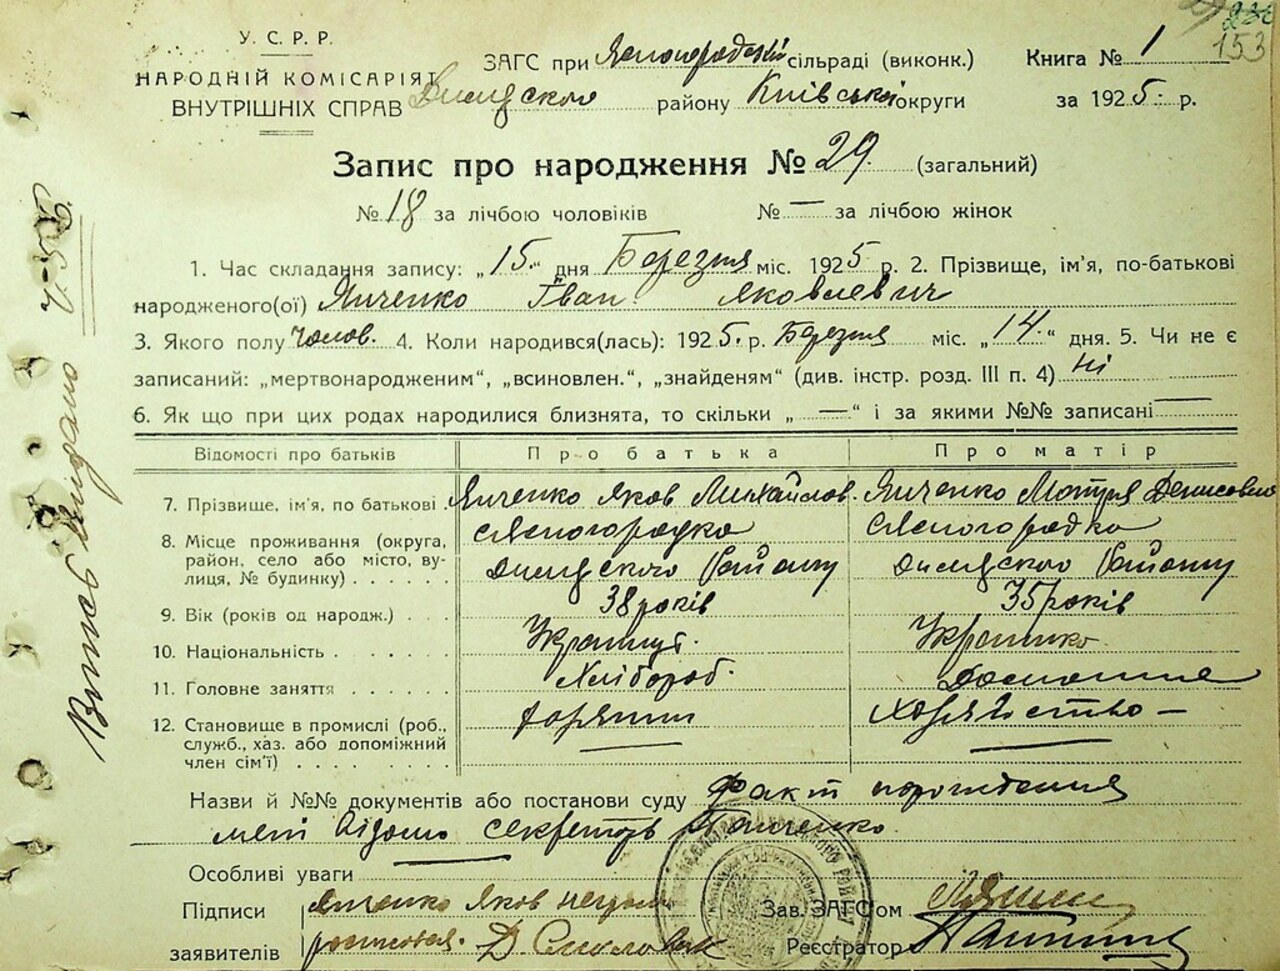 153
У. С. Р. Р.
НАРОДНІЙ КОМІСАРІЯТ
ВНУТРІШНІХ СПРАВ
ЗАГС при Ясногородській сільраді (виконк.) Книга № 1
району Київської округи за 1925 р.
Запис про народження № 29. (загальний)
№ 18 за лічбою чоловіків № — за лічбою жінок
1. Час складання запису: „15.“ дня Березня міс. 1925 р. 2. Прізвище, ім'я, по-батькові
народженого(ої) Янченко Іван Яковлевич
3. Якого полу чолов. 4. Коли народився(лась): 1925. р. Березня міс. „14.“ дня. 5. Чи не є
записаний: „мертвонародженим“, „всиновлен.“, „знайденям“ (див. інстр. розд. III п. 4) ні
6. Як що при цих родах народилися близнята, то скільки „—“ і за якими №№ записані —
Відомості про батьків Про батька Про матір
7. Прізвище, ім'я, по батькові . Янченко Яков Михайлов. Янченко Мотря Денисовна
8. Місце проживання (округа, район, село або місто, вулиця, № будинку) . . . . . . с Ясногородка с Ясногородка
району району
9. Вік (років од народж.) . . . 38 років 35 років
10. Національність . . . . . . Українка
11. Головне заняття . . . . . . Хлібороб. Домашнє
12. Становище в промислі (роб., служб., хаз. або допоміжний член сім'ї) . . . . . . . хозяйство —
Назви й №№ документів або постанови суду Факт порождения
мені відомо секретарь
Особливі уваги
Підписи Янченко Яков
заявителів
Зав. ЗАГС'ом
Реєстратор
Витяг видано